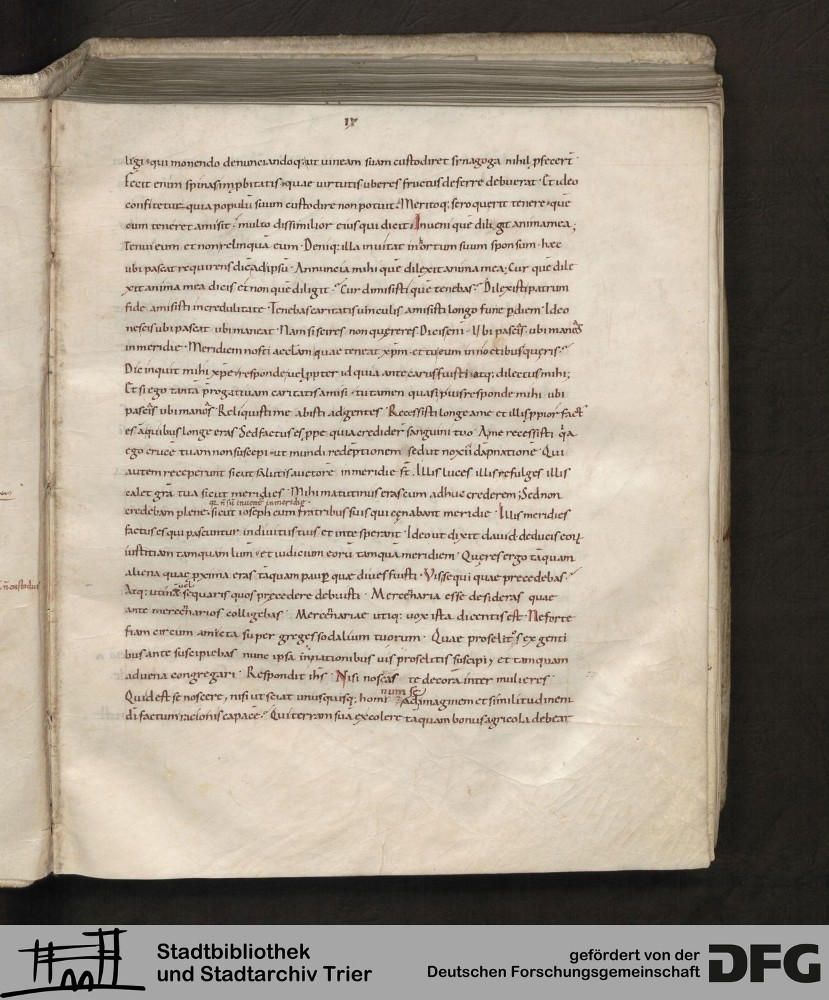 ligi· qui monendo denunciandoq; ut uineam suam custodiret synagoga nihil pfecer̄t·
Fecit enim spinas inpbitatis· quae uirtutis uberes fructus deferre debuerat· Et ideo
confitetur quia populū suum custodire non potuit· Meritoq; sero querit tenere· quē
cum teneret amisit· multo dissimilior eius qui dicit· Inueni quē diligit anima mea;
Tenui eum et non relinquā eum· Deniq; illa inuitat in ortum suum sponsum· hæc
ubi pascat requirens dicē adipsū· Annuncia mihi quē dilexit anima mea; Cur quē dile
xit anima mea dicis et non quē diligit· Cur dimisisti quē tenebas· Dilexisti patrum
fide amisisti incredulitate· Tenebas caritatis uinculis amisisti longo fune pdiem· Ideo
nescis ubi pascat ubi maneat· Nam si scires non quereres· Dicis eni· Ubi pascis ubi manes
in meridie· Meridiem nosti aecclam quae teneat xpm· et tu eum in noctibus queris·
Dic inquit mihi xpe· responde· uel ppter id quia ante carus fuisti atq; dilectus mihi;
Et si ego tantā progatiuam caritatis amisi· tu tamen quasi pius responde mihi ubi
pascis ubi manes· Reliquisti me abisti ad gentes· Recessisti longe a me et illis ppior fact'
es a quibus longe eras· Sed factus es ppe quia crediderr sanguini tuo· A me recessisti qa
ego crucē tuam non suscepi· ut mundi redēptionem sed ut noxii dāpnationē· Qui
autem receperunt sicut salutis auctorē in meridie st̄· Illis luces illis refulges illis
calet gra tua sicut meridies· Mihi matutinus eras cum adhuc crederem; Sed non
credebam plene· sicut ioseph cum fratribus suis qui cęnabant meridie· Illis meridies
factus es qui pascuntur in diuitiis tuis et in te sperant· Ideo ut dixit dauid· deducis eorum
iustitiam tamquam lum̄· et iudicium eorū tamquā meridiem· Queres ergo tāquam
aliena quae pxima eras· tāquam paup quae diues fuisti· Vis sequi quae precedebas·
Atq; utinā uel sequaris quos precedere debuisti· Mercennaria esse desideras quae
ante mercennarios colligebas· Mercennariae utiq; uox ista dicentis est· Ne forte
fiam circum amicta super greges sodalium tuorum· Quae proselitos ex genti
bus ante suscipiebas nunc ipsa iniciationibus uis proselitis suscipi· et tamquam
aduena congregari· Respondit ihs· Nisi noscas te decorā inter mulieres·
Quid est se noscere, nisi ut sciat unusquisq; homi num se ad imaginem et similitudinem
di factum racionis capacē· Qui terram suā excolere tāquam bonus agricola debeat
Stadtbibliothek
und Stadtarchiv Trier
gefördert von der
Deutschen Forschungsgemeinschaft
DFG